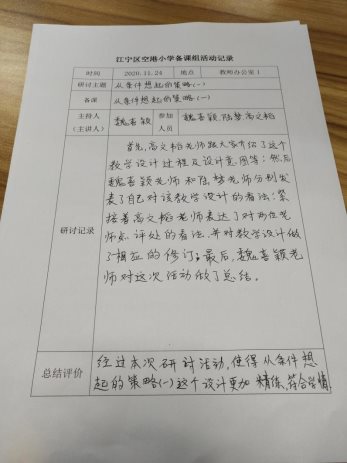 江宁区空港小学备课组活动记录
时间 2020.11.24 地点 教师办公室1
研讨主题 从条件想起的策略(一)
备课 从条件想起的策略(一)
主持人 魏喜颖 参加 魏喜颖、陈梦、高文韬
(主讲人) 人员
首先,高文韬老师跟大家介绍了这个
教学设计过程及设计意图等;然后
魏喜颖老师和陈梦老师分别发
表了自己对该教学设计的看法;紧
接着高文韬老师表达了对两位老
师点评处的看法,并对教学设计做
了相应的修订;最后,魏喜颖老
师对这次活动做了总结。
研讨记录
经过本次研讨活动,使得从条件想
总结评价 起的策略(一)这个设计更加精练,符合学情